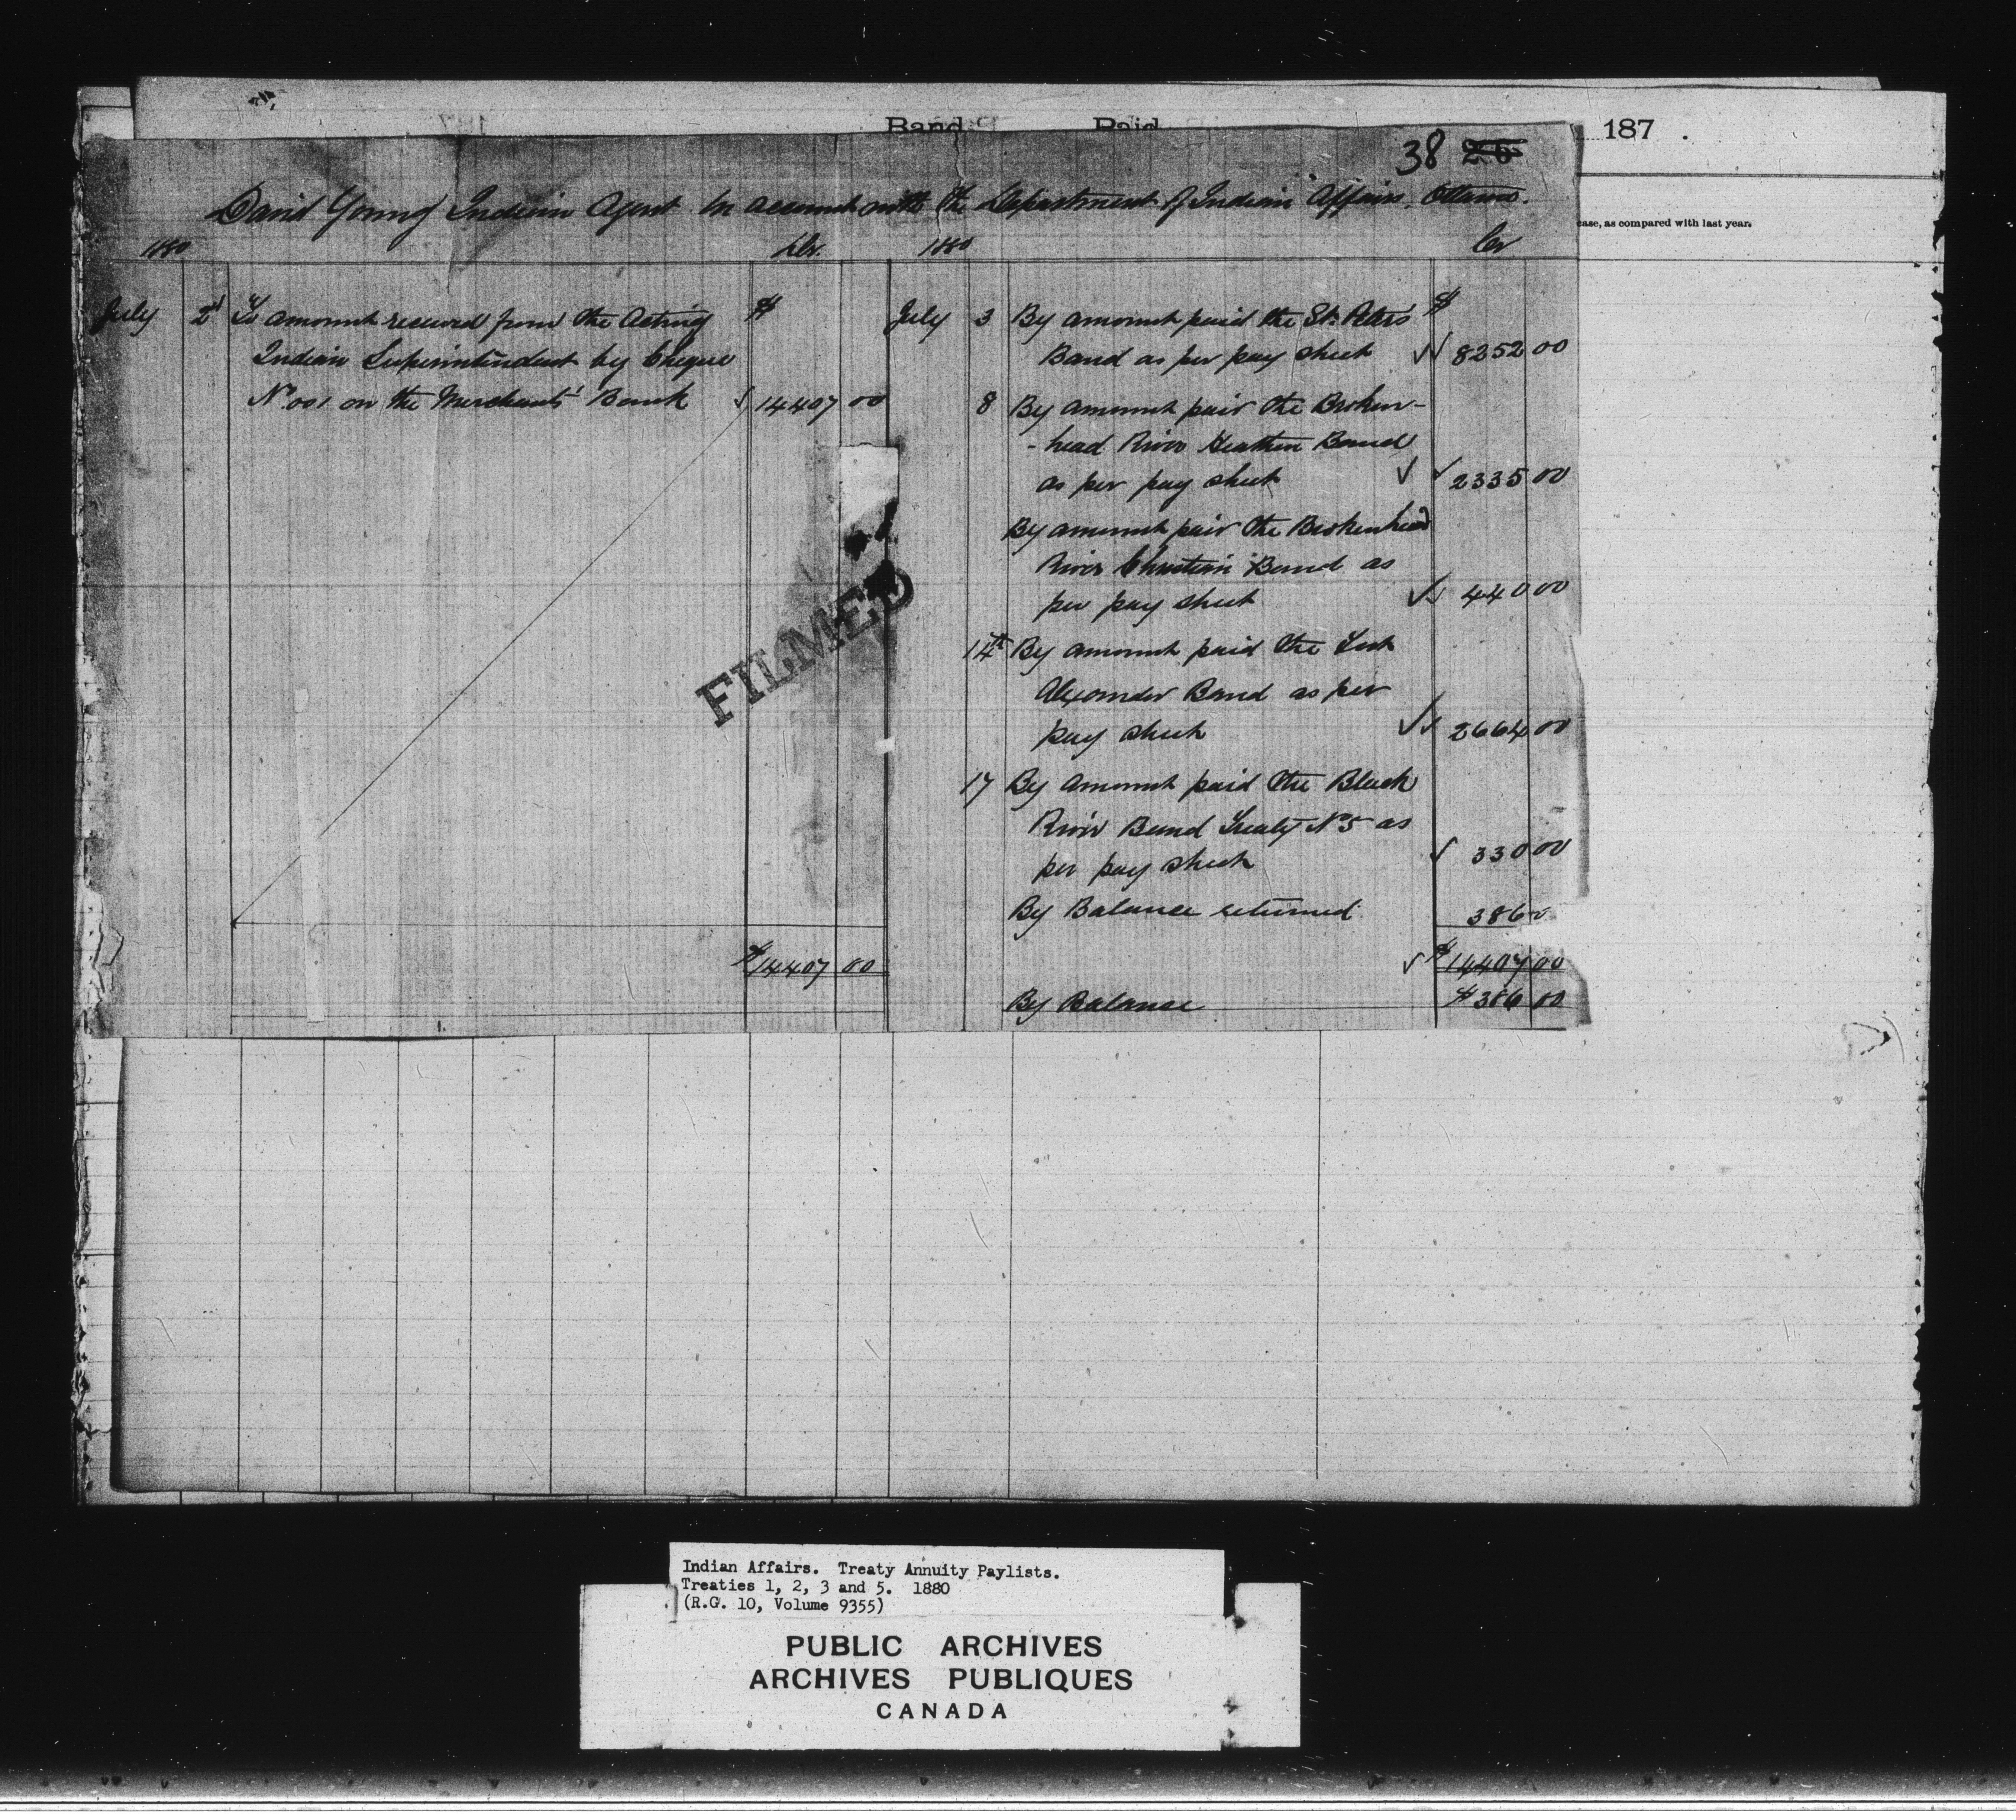 Band Paid 187 .
38 26
David Young Indian Agent In account with the Department of Indian Affairs. Ottawa.
ease, as compared with last year.
1880 Dr. 1880 Cr
July 2d To amount received from the Acting $
Indian Superintendent by Cheque
No. 001 on the Merchants' Bank 14407 00
$14407 00
July 3 By amount paid the St. Peters $
Band as per pay sheet 8252 00
8 By amount paid the Broken-
-head River Heathen Band
as per pay sheet 2335 00
By amount paid the Brokenhead
River Christian Band as
per pay sheet 440 00
14th By amount paid the Fort
Alexander Band as per
pay sheet 2664 00
17 By amount paid the Black
River Band Treaty No 5 as
per pay sheet 330 00
By Balance returned 386 0
$14407 00
By Balance $386 00
FILMED
Indian Affairs. Treaty Annuity Paylists.
Treaties 1, 2, 3 and 5. 1880
(R.G. 10, Volume 9355)
PUBLIC ARCHIVES
ARCHIVES PUBLIQUES
CANADA